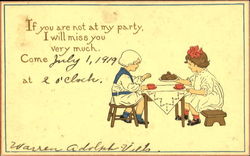 If you are not at my party,
I will miss you
very much.
Come July 1, 1919
at 2 o'clock.
Warren Adolph